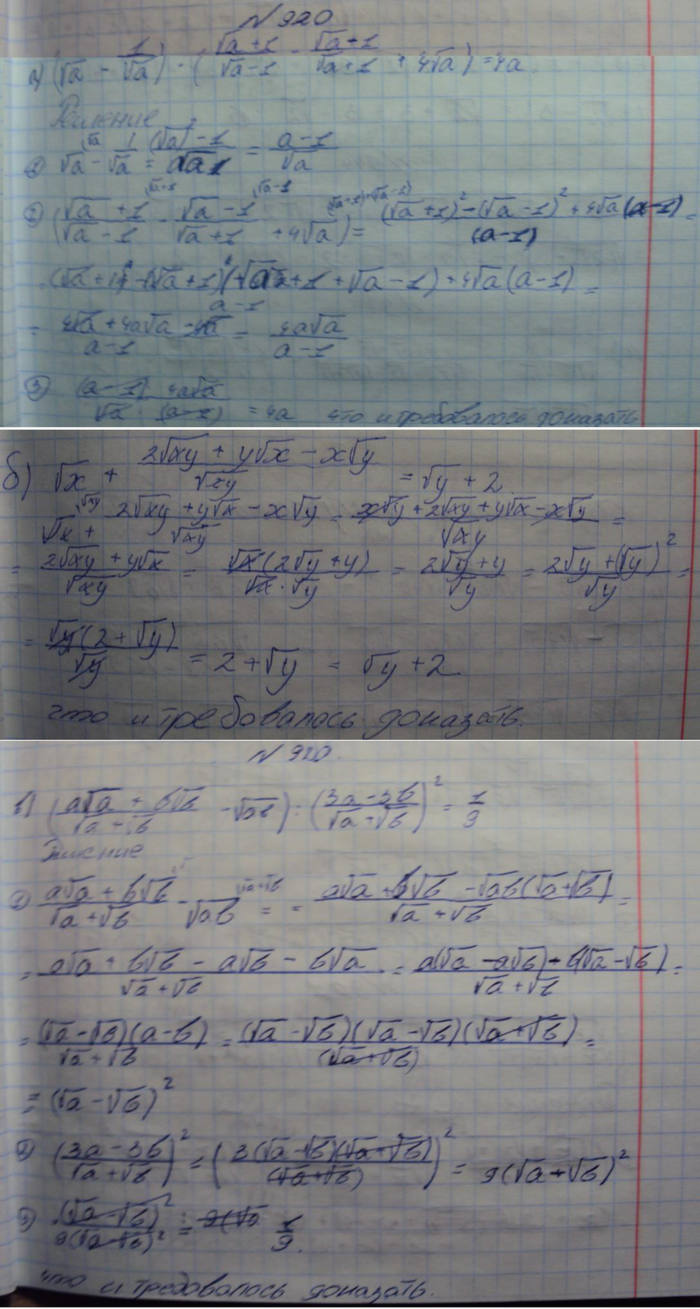 N 920
а) (√a - 1/√a) · (√a+1/√a-1 - √a+1/√a+1 + 4√a) = 4a
Решение
① √a - 1/√a = (√a)² - 1/√a = a-1/√a
② (√a+1/√a-1 - √a-1/√a+1 + 4√a) = (√a+1)² - (√a-1)² + 4√a(a-1)/(a-1) =
= 4√a + 4a√a - 4√a/a-1 = 4a√a/a-1
③ (a-1) · 4a√a/√a · (a-1) = 4a что и требовалось доказать
б) √x + 2√xy + y√x - x√y/√xy = √y + 2
√x + 2√xy + y√x - x√y/√xy = x√y + 2√xy + y√x - x√y/√xy =
= 2√xy + y√x/√xy = √x(2√y + y)/√x · √y = 2√y + y/√y = 2√y + (√y)²/√y =
= √y(2 + √y)/√y = 2 + √y = √y + 2
что и требовалось доказать.
N 920.
в) (a√a + b√b/√a + √b - √ab) : (3a - 3b/√a + √b)² = 1/9
Решение
① a√a + b√b/√a + √b - √ab = = a√a + b√b - √ab(√a + √b)/√a + √b =
= a√a + b√b - a√b - b√a/√a + √b = a(√a - a√b) - b(√a - √b)/√a + √b =
= (√a - √b)(a - b)/√a + √b = (√a - √b)(√a - √b)(√a + √b)/(√a + √b) =
= (√a - √b)²
② (3a - 3b/√a + √b)² = (3(√a - √b)(√a + √b)/(√a + √b))² = 9(√a + √b)²
③ (√a - √b)²/9(√a - √b)² = 1/9.
что и требовалось доказать.